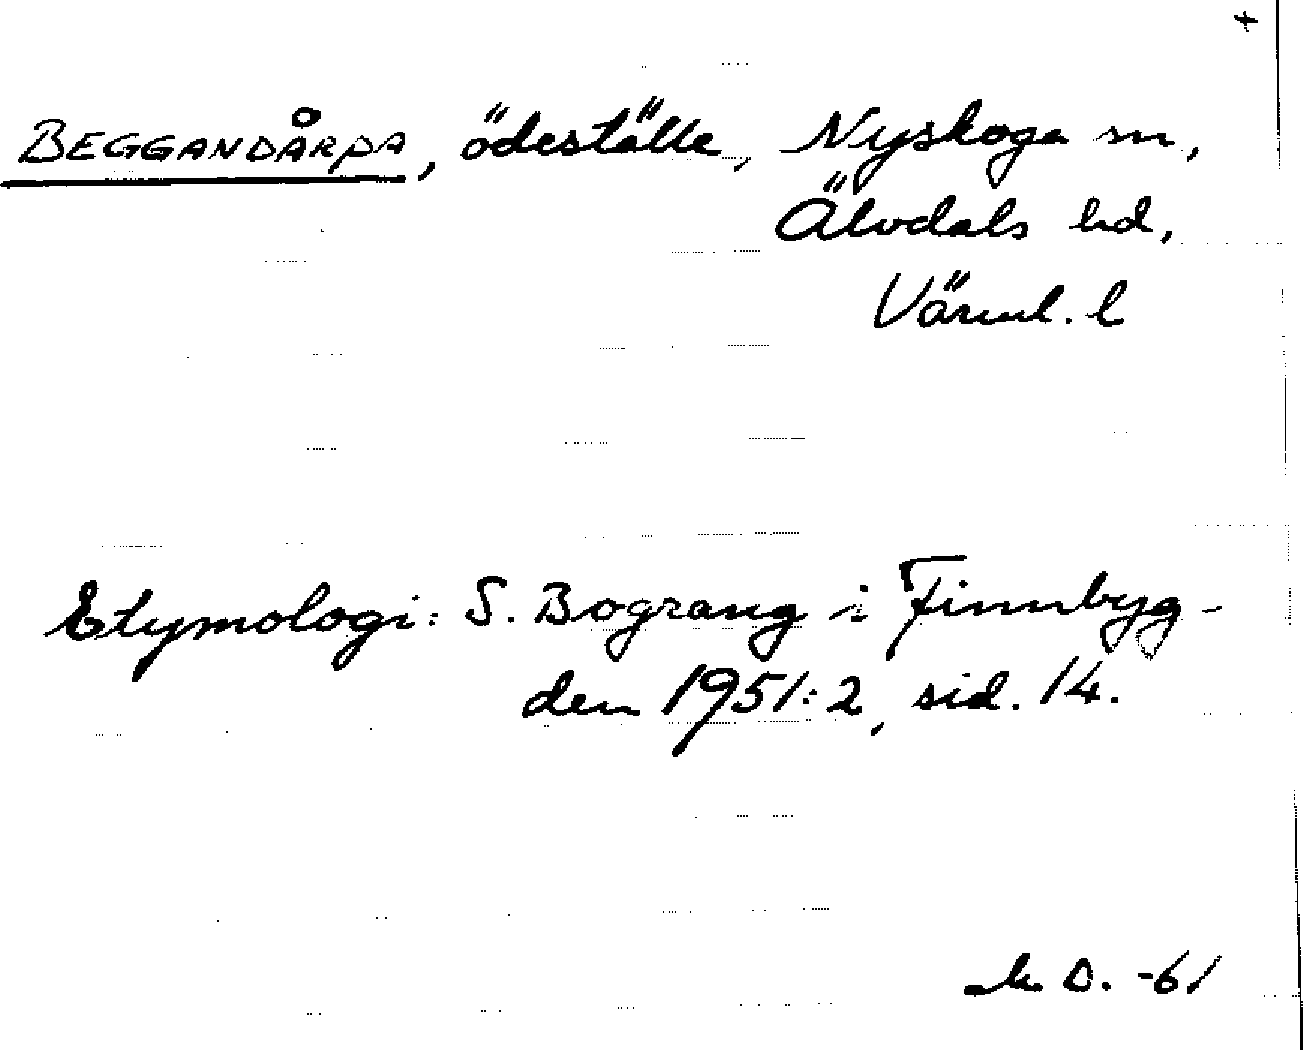 +
BEGGANDÅRPA, ödeställe, Nyskoga sn,
Älvdals hd,
Värml. l
Etymologi: S. Bograng i Finnbyg-
den 1951:2, sid. 14.
D. -61